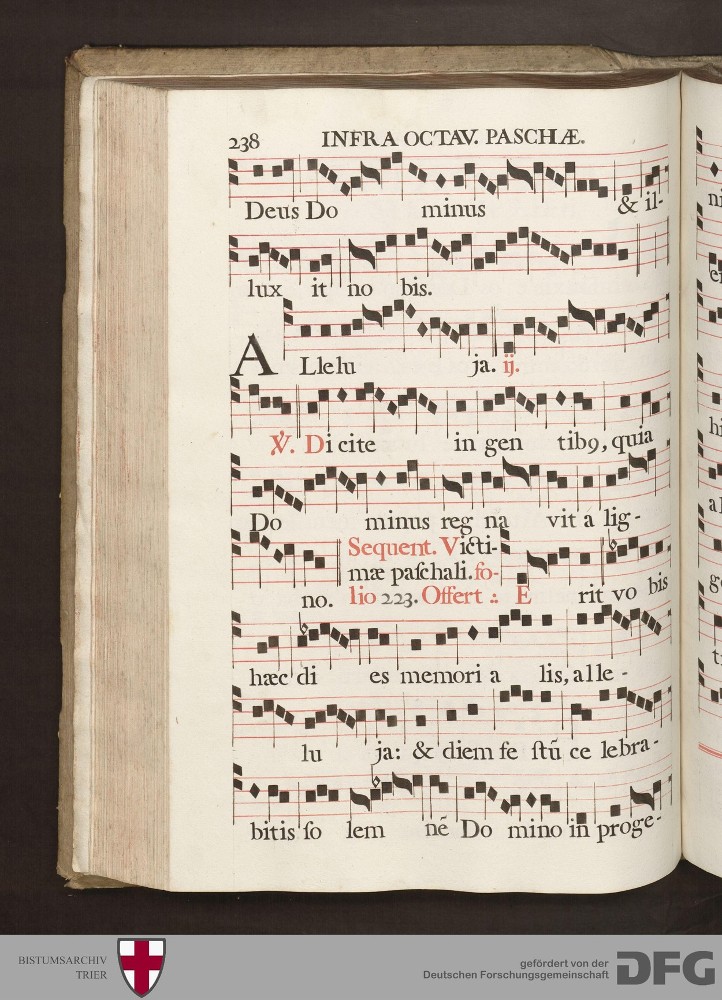 238 INFRA OCTAV. PASCHÆ.
Deus Do minus & il-
lux it no bis.
A Lle lu ja. ij.
℣. Di cite in gen tib9, quia
Do minus reg na vit à lig-
no. Sequent. Victi-
mæ paſchali. fo-
lio 223. Offert ∴ E rit vo bis
hæc di es memori a lis, alle-
lu ja: & diem fe ſtū ce lebra-
bitis ſo lem nē Do mino in proge-
BISTUMSARCHIV
TRIER
gefördert von der
Deutschen Forschungsgemeinschaft
DFG